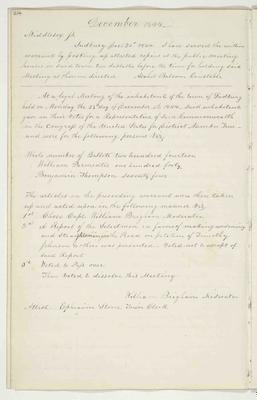 December 1844.
Middlesex ss
Sudbury Dec 30th 1844. I have served the within
warrant by posting up attested copies at the public meeting
houses in said town ten days before the time for holding said
Meeting as therein directed. Constable
At a legal Meeting of the inhabitants of the town of Sudbury
held on Monday the day of December A.D. 1844. Said inhabitants
gave in their votes for a Representative of the Commonwealth
in the Congress of the United States for District Number
and were for the following persons Viz
Whole number of Ballots two hundred fourteen
William Parmenter one hundred forty
Benjamin Thompson seventy four
The articles in the preceding warrant were then taken
up and acted upon in the following manner Viz
1st Chose Capt. William Brigham Moderator
2d A Report of the Selectmen in favor of making widening
and straightening the Road on petition of Timothy
Johnson & others was presented. Voted not to accept of
said Report
3d Voted to Pass over
Then Voted to dissolve this Meeting
William Brigham Moderator
Attest Ephraim Stone Town Clerk